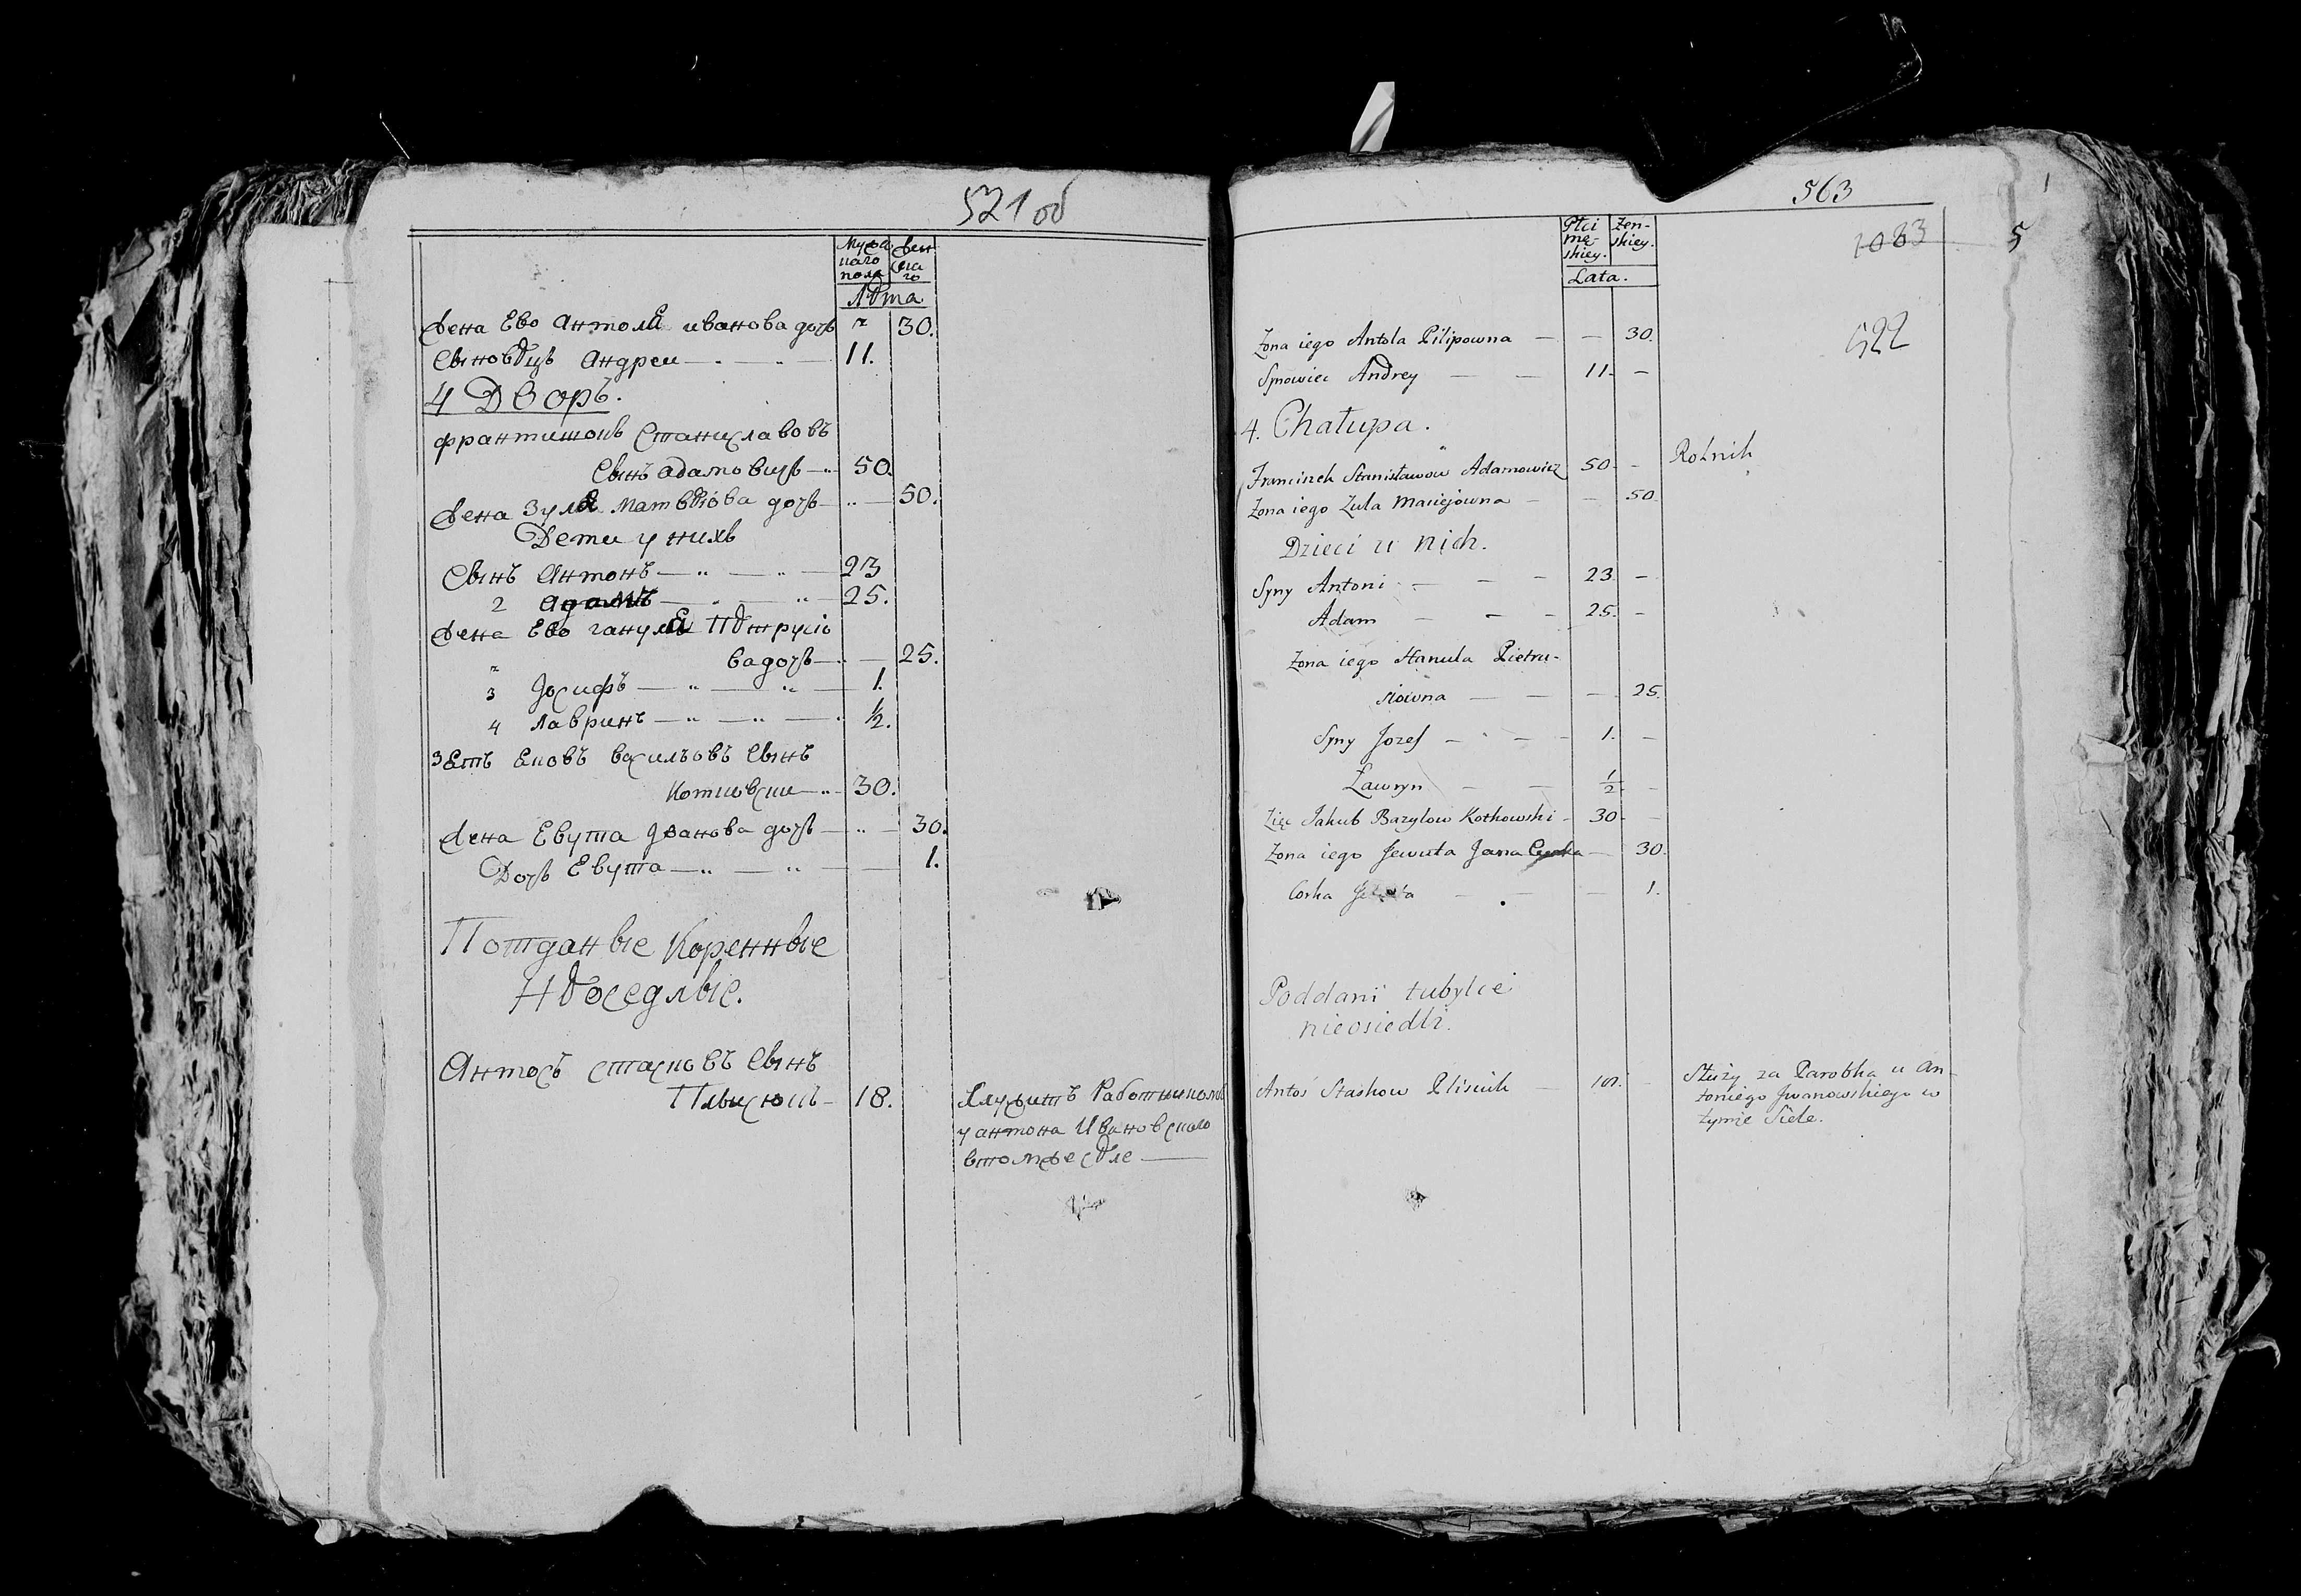 521 об
Мужес
каго
пола
жен
ска
го
Лѣта
Жена Ево Антоля иванова дочь " 30.
Сыновѣцъ Андреи — " — 11.
4 Дворъ.
Франтишокъ Станиславовъ
Сынъ адамовичъ — " 50.
Жена Зуля Матвѣюва дочь — " — 50.
Дети у нихъ
Сынъ Антонъ — " — " — 23
2 адамъ — " — " — 25.
Жена Ево гануля Пѣтрусю
ва дочь — " — 25.
3 Јосифъ — " — " — 1.
4 Лавринъ — " — " — " ½.
зеть Яковъ Васильовъ Сынъ
Котковски — " 30.
Жена Евута Јванова дочь — " — 30.
Дочь Евута — " — " — 1.
Потданые Коренные
Нѣоседлые.
Антосъ стасковъ Сынъ
Плискокъ — 18.
Служитъ Работникомъ
у антона Ивановскаго
втомже сѣле —
563
Płci
mę-
skiey.
żen-
skiey.
Lata.
1083
5
522
Żona iego Antola Pilipowna — — 30.
Synowiec Andrey — — 11. —
4. Chałupa.
Franciszek Stanisławow Adamowicz 50. — Rolnik
Żona iego Zula Maciejowna — — 50.
Dzieci u nich.
Syny Antoni — — — 23. —
Adam — — — 25. —
Żona iego Hanula Pietru-
siowna — — — 25.
Syny Jozef — — — 1. —
Ławryn — — ½. —
Zięć Jakub Bazylow Kotkowski — 30. —
Żona iego Jewuta Jana — 30.
Corka — — — 1.
Poddani tubylce
nieosiedli.
Antoś Staskow Plisiuk — 18. —
Służy za Parobka u An-
toniego Jwanowskiego w
tymże Siele.